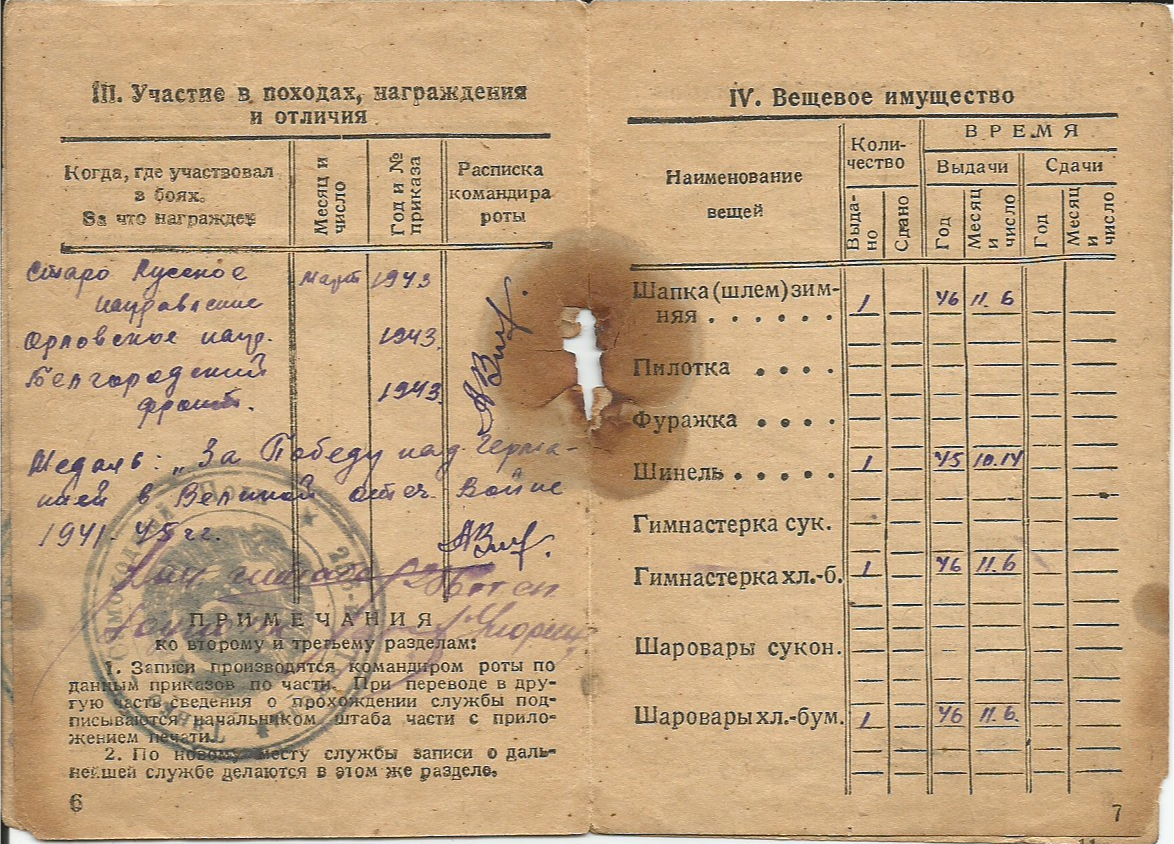 III. Участие в походах, награждения
и отличия
Когда, где участвовал
в боях.
За что награжден
Месяц и
число
Год и №
приказа
Расписка
командира
роты
Старо Русское Март 1943
направление
Орловское напр. 1943.
Белгородский
фронт. 1943.
Медаль: „За Победу над Герма-
нией в Великой отеч. Войне
1941-45 гг.
Нач штаба
ПРИМЕЧАНИЯ
ко второму и третьему разделам:
1. Записи производятся командиром роты по
данным приказов по части. При переводе в дру-
гую часть сведения о прохождении службы под-
писываются начальником штаба части с прило-
жением печати.
2. По новому месту службы записи о даль-
нейшей службе делаются в этом же разделе.
6
IV. Вещевое имущество
Наименование
вещей
Коли-
чество
ВРЕМЯ
Выдачи
Сдачи
Выда-
но
Сдано
Год
Месяц
и
число
Год
Месяц
и
число
Шапка (шлем) зим-
няя . . . . . . 1 46 11.6
Пилотка . . . .
Фуражка . . . .
Шинель . . . . . 1 45 10.14
Гимнастерка сук.
Гимнастерка хл.-б. 1 46 11.6
Шаровары сукон.
Шаровары хл.-бум. 1 46 11.6.
7